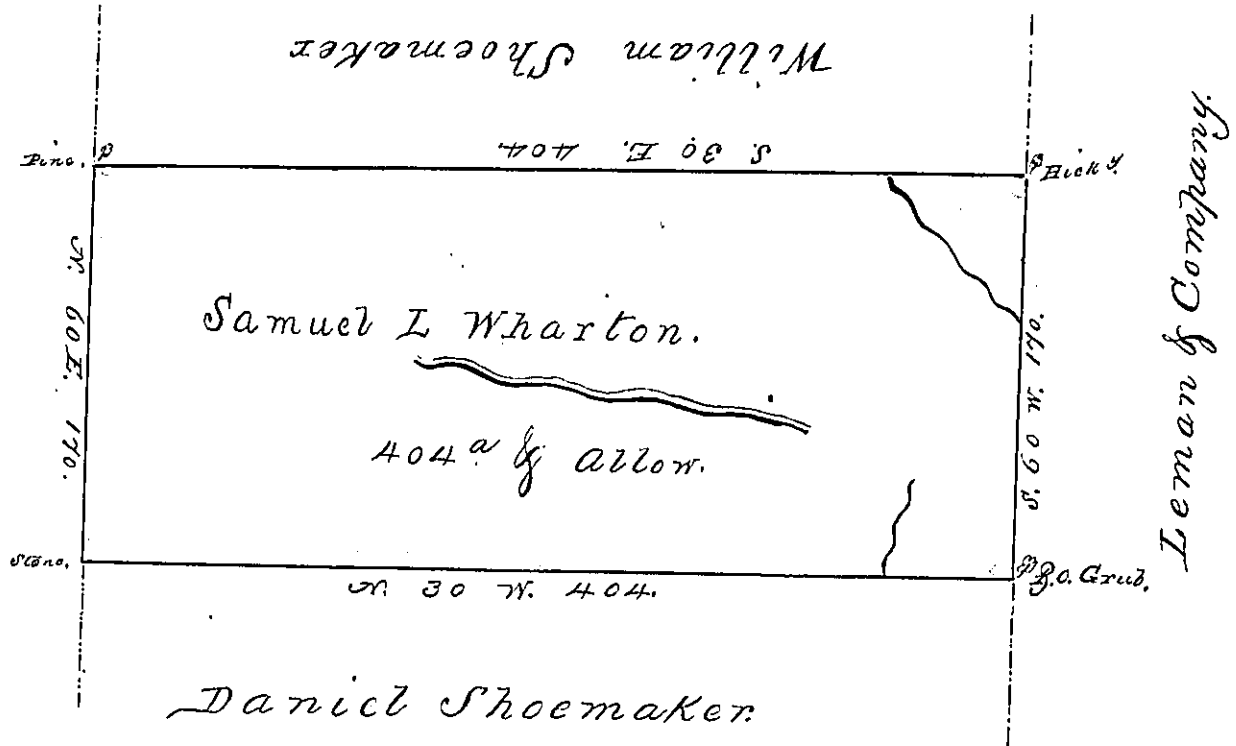 William Shoemaker
Pine. P
S. 30 E. 404.
P Hick y.
N. 60 E. 170.
Samuel L Wharton.
404 a & Allow.
S. 60 W. 170.
Leman & Company.
Stone.
N. 30 W. 404.
P B.O. Grub.
Daniel Shoemaker.